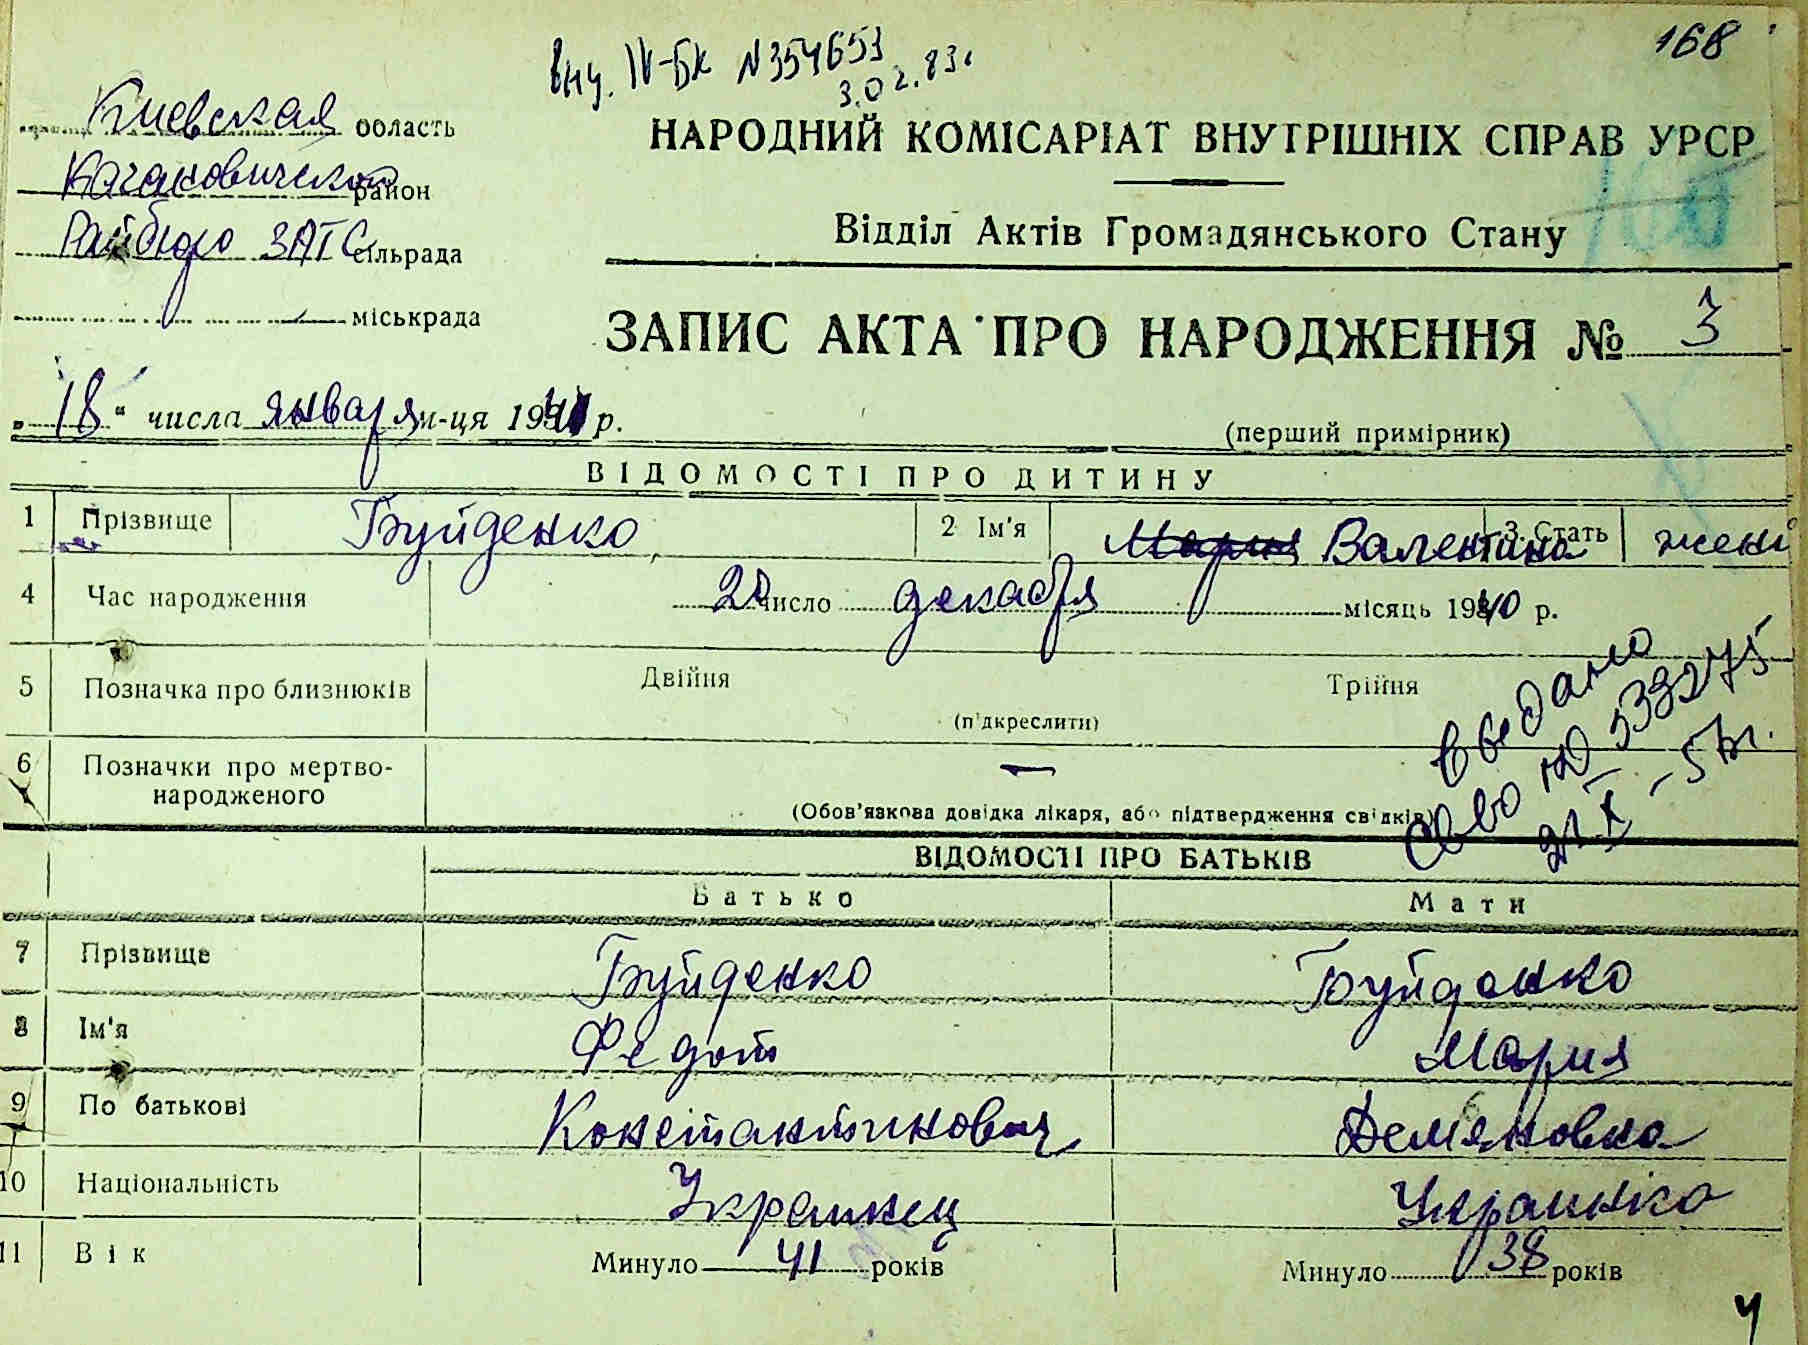 168
вну. IV-БК N354653
3.02.83г
Киевская область
Кагановический район
Райбюро ЗАГС сільрада
міськрада
НАРОДНИЙ КОМІСАРІАТ ВНУТРІШНІХ СПРАВ УРСР
Відділ Актів Громадянського Стану
ЗАПИС АКТА ПРО НАРОДЖЕННЯ № 3
„18“ числа января м-ця 1941 р.
(перший примірник)
ВІДОМОСТІ ПРО ДИТИНУ
1 Прізвище Буйденко 2 Ім'я Мария Валентина 3. Стать жен
4 Час народження 20 число декабря місяць 1940 р.
5 Позначка про близнюків Двійня Трійня
(підкреслити)
6 Позначки про мертвонародженого —
(Обов'язкова довідка лікаря, або підтвердження свідків)
выдано
св-во
ВІДОМОСТІ ПРО БАТЬКІВ
Батько Мати
7 Прізвище Буйденко Буйденко
8 Ім'я Федот Мария
9 По батькові Константинович Демяновна
10 Національність Украинец Украинка
11 Вік Минуло 41 років Минуло 38 років